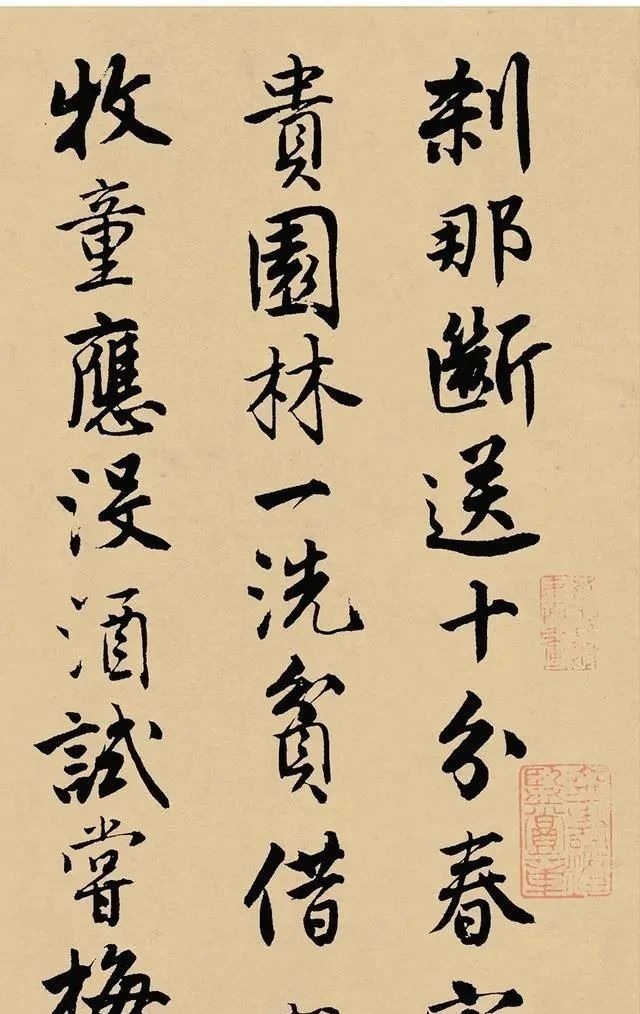 刹那斷送十分春
貴園林一洗貧借
牧童應没酒試嘗梅